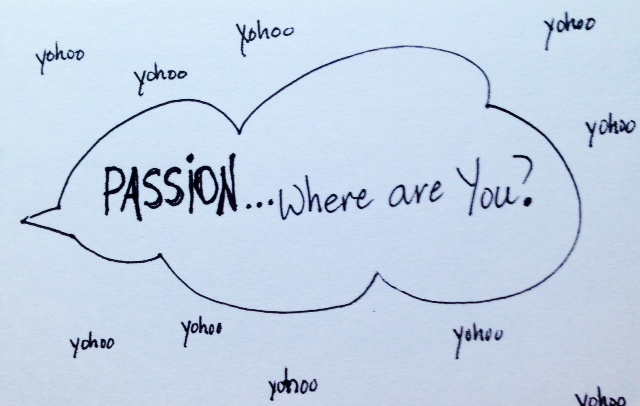 yohoo
yohoo
yohoo
yohoo
yohoo
PASSiON...Where are You?
yohoo
yohoo
yohoo
yohoo
yohoo